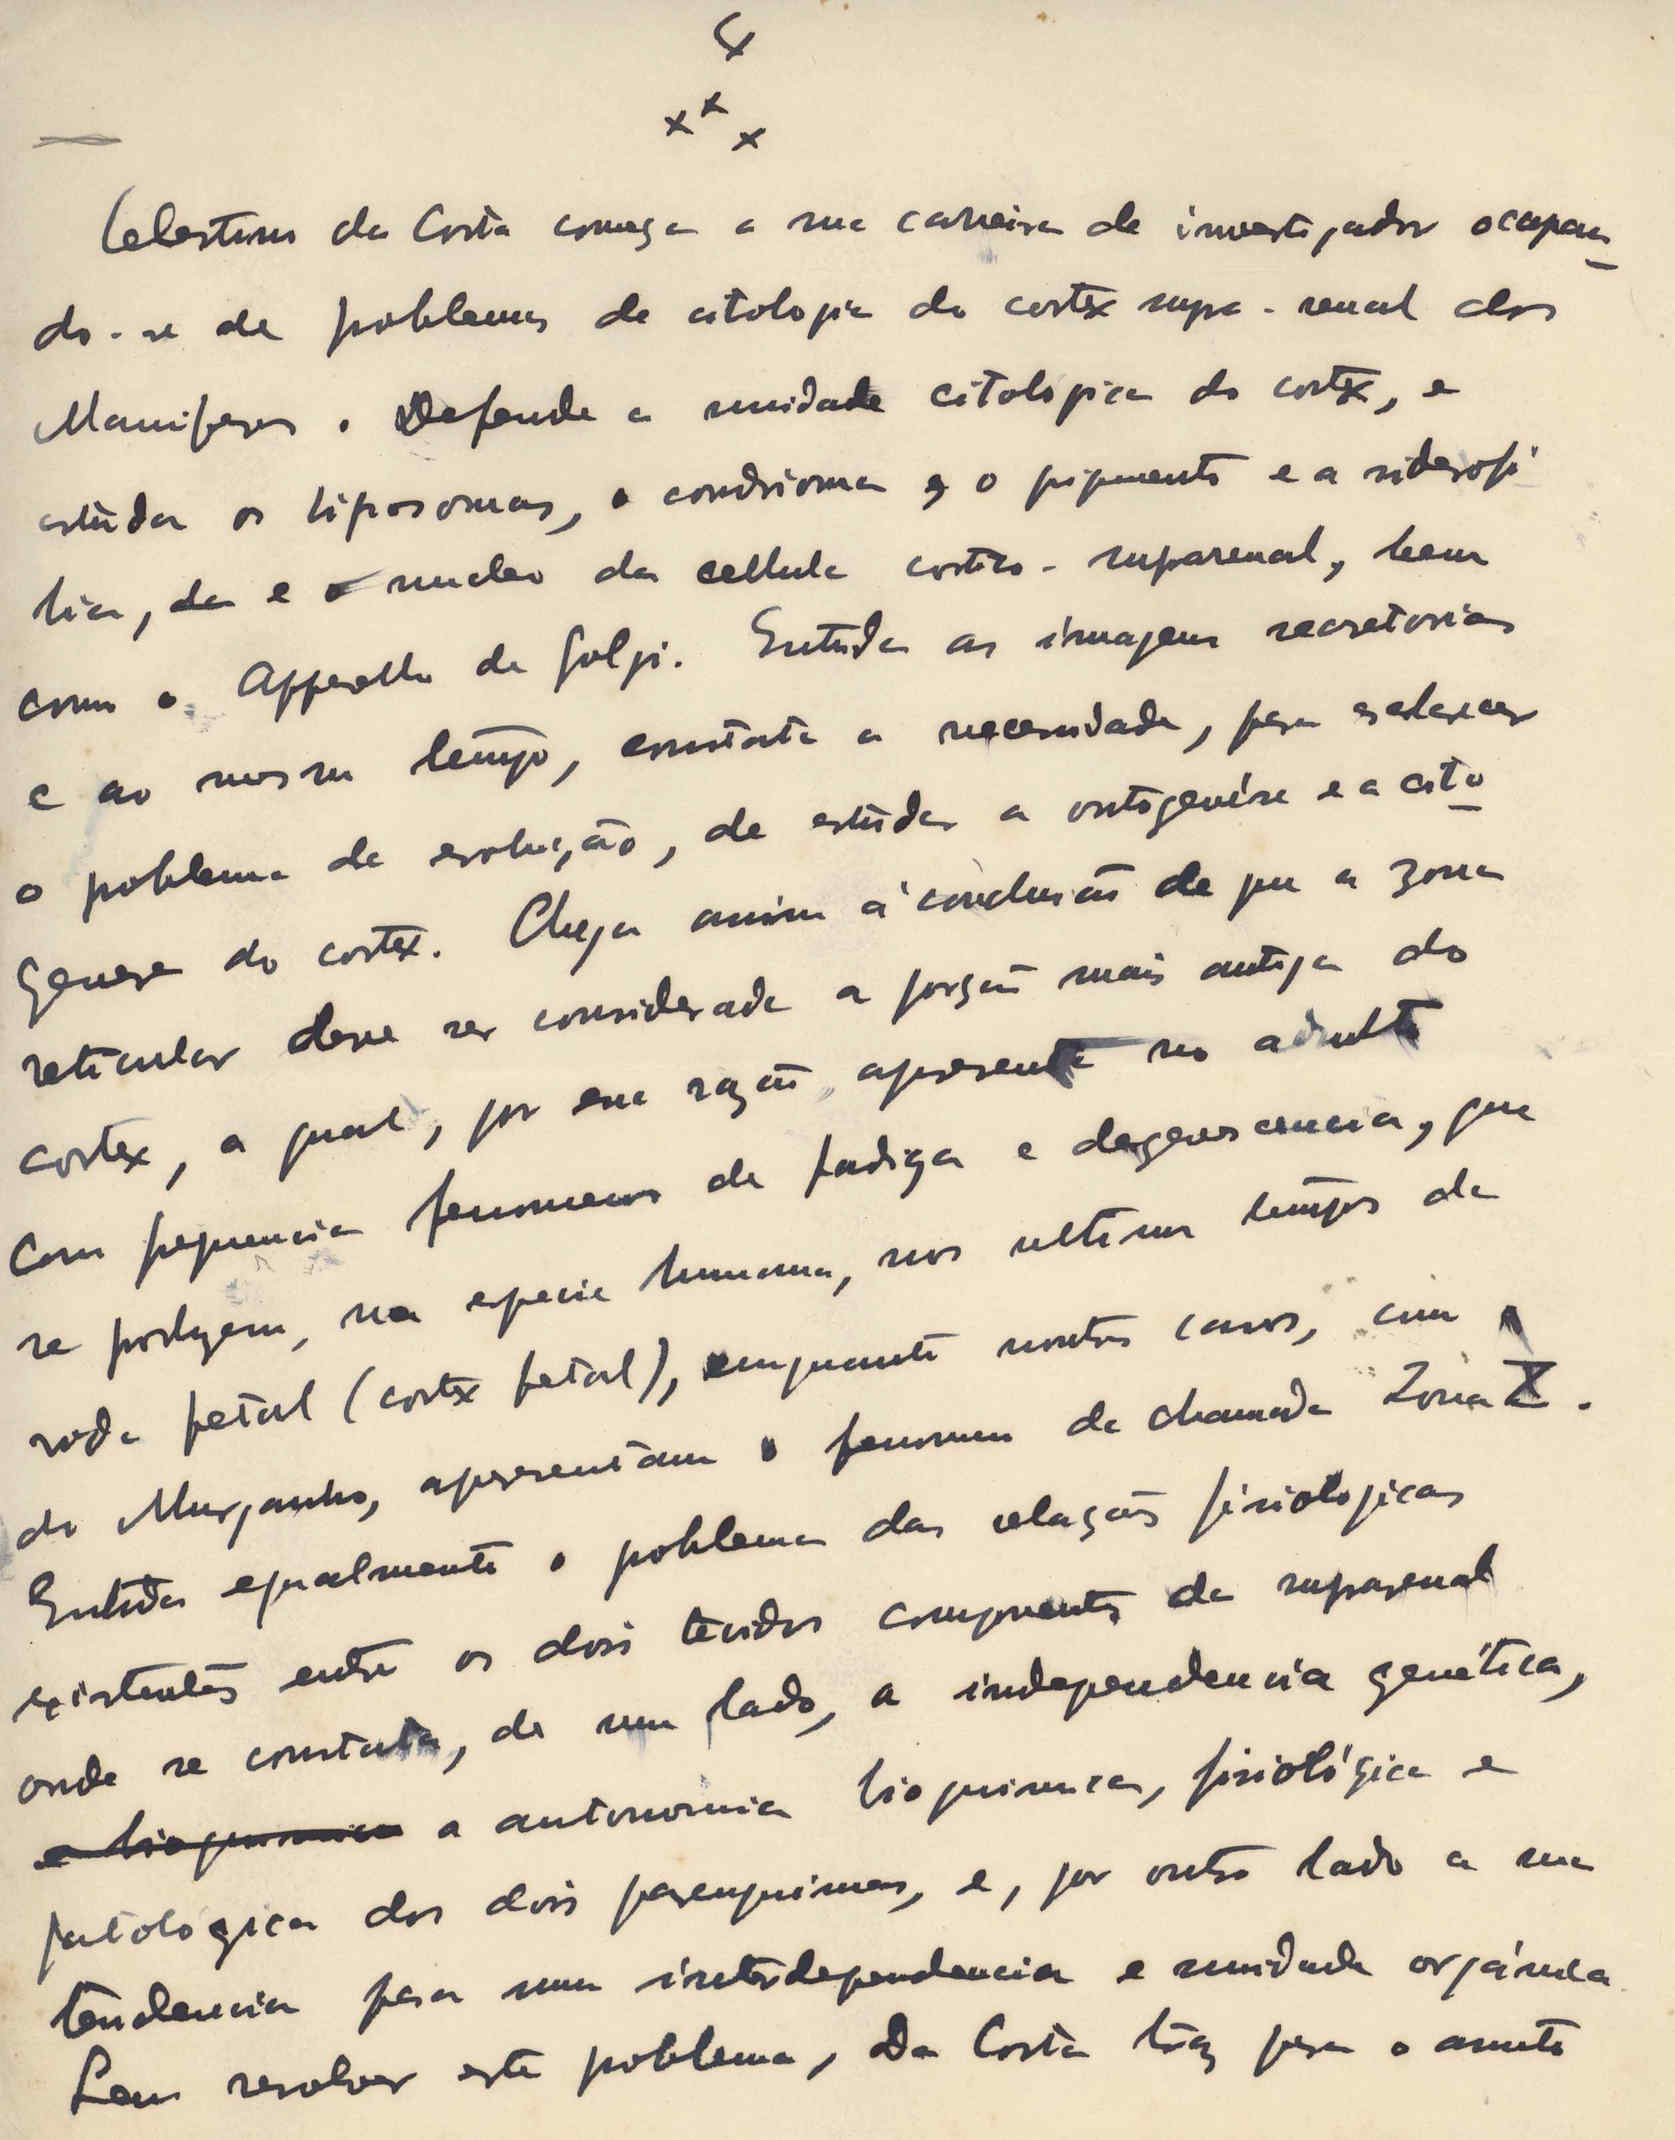 x x x
Celestino da Costa começa a sua carreira de investigador ocupan
do-se de problemas de citologia do cortex supra-renal dos
Mamiferos. Defende a unidade citologica do cortex, e
estuda os liposomas, o condrioma e, o pigmento e a siderofi
lia, da e o nucleo da cellula cortico-suparenal, bem
como o Apparelho de Golgi. Estuda as imagens secretorias
e ao mesmo tempo, constata a necessidade, para esclarecer
o problema da evolução, de estudar a ontogenése e a cito
genese do cortex. Chega assim á conclusão de que a zona
reticular deve ser considerada a porção mais antiga do
cortex, a qual, por essa razão, apresenta no adulto
com frequencia fenomenos de fadiga e degenerescencia, que
se produzem, na especie humana, nos ultimos tempos da
vida fetal (cortex fetal), emquanto noutros casos, como
do Murganho, apresentam o fenomeno da chamada Zona X.
Estuda egualmente o problema das relações fisiologicas
existentes entre os dois tecidos componentes da suprarenal
onde se constata, de um lado, a independencia genética,
e bioquimica a autonomia bioquimica, fisiológica e
patologica dos dois parenquimas, e, por outro lado a sua
tendencia para uma interdependencia e unidade orgánica
Sem resolver este problema, Da Costa traz para o assunto